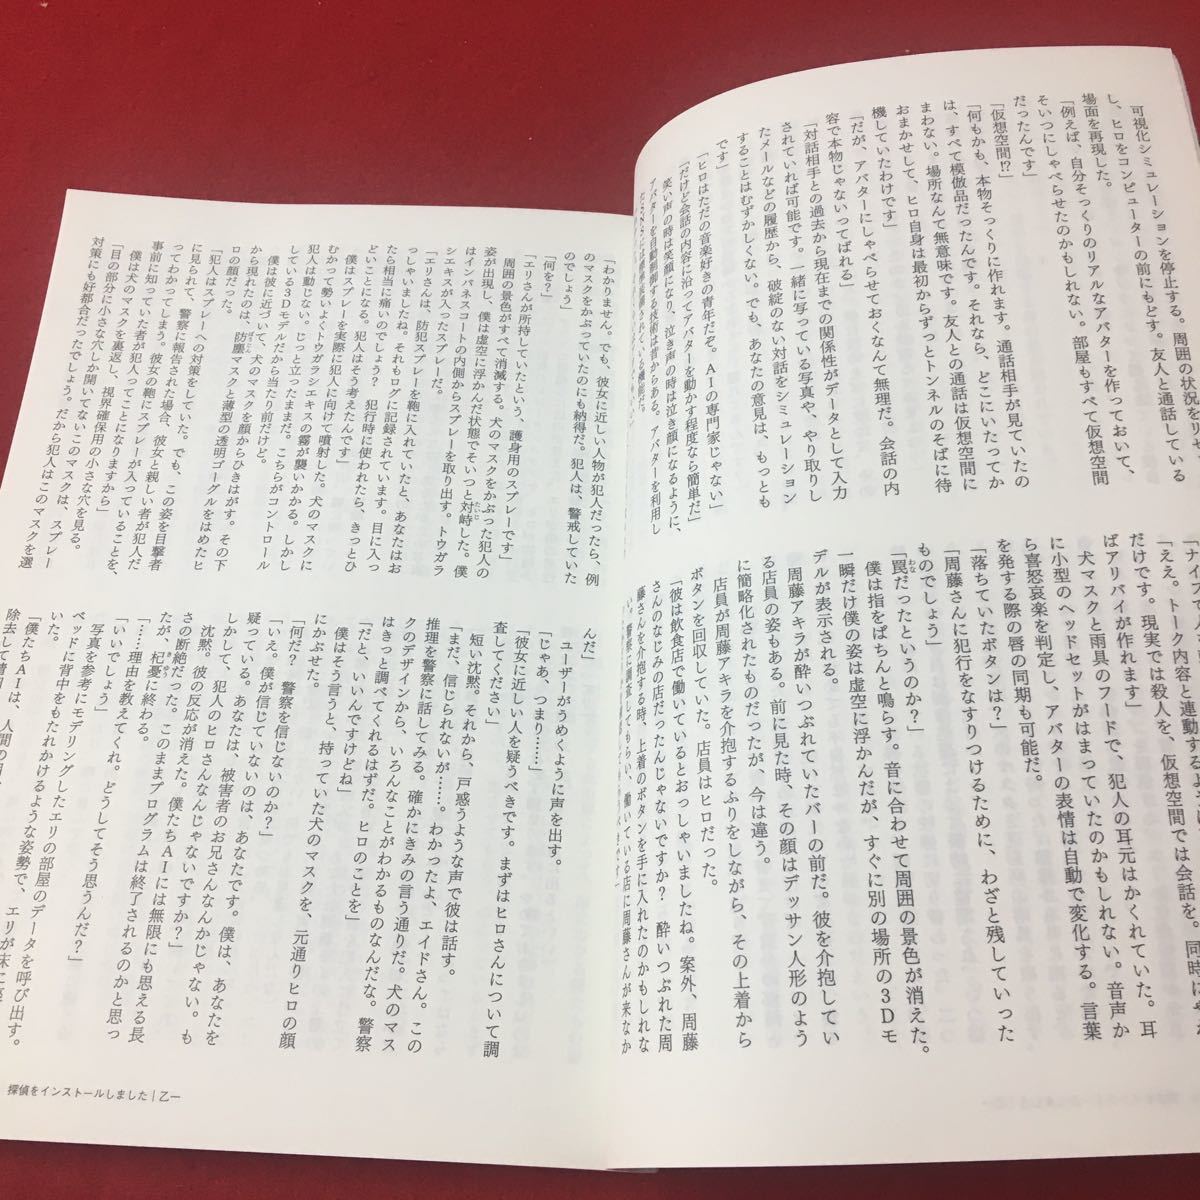 可視化シミュレーションを停止する。周囲の状況をリ
し、ヒロをコンピューターの前にもどす。友人と通話している
場面を再現した。
「例えば、自分そっくりのリアルなアバターを作っておいて、
そいつにしゃべらせたのかもしれない。部屋もすべて仮想空間
だったんです」
「仮想空間!?」
「何もかも、本物そっくりに作れます。通話相手が見ていたの
は、すべて模倣品だったんです。それなら、どこにいたってか
まわない。場所なんて無意味です。友人との通話は仮想空間に
おまかせして、ヒロ自身は最初からずっとトンネルのそばに待
機していたわけです」
「だが、アバターにしゃべらせておくなんて無理だ。会話の内
容で本物じゃないってばれる」
「対話相手との過去から現在までの関係性がデータとして入力
されていれば可能です。一緒に写っている写真や、やり取りし
たメールなどの履歴から、破綻のない対話をシミュレーション
することはむずかしくない。でも、あなたの意見は、もっとも
です」
「ヒロはただの音楽好きの青年だぞ。AIの専門家じゃない」
「だけど会話の内容に沿ってアバターを動かす程度なら簡単だ」
笑い声の時は笑顔になり、泣き声の時は泣き顔になるように、
アバターを自動制御する技術は昔からある。アバターを利用し
「ええ。トーク内容と連動するよう
だけです。現実では殺人を、仮想空間では会話を。同時にや
ばアリバイが作れます」
犬マスクと雨具のフードで、犯人の耳元はかくれていた。耳
に小型のヘッドセットがはまっていたのかもしれない。音声か
ら喜怒哀楽を判定し、アバターの表情は自動で変化する。言葉
を発する際の唇の同期も可能だ。
「落ちていたボタンは?」
「周藤さんに犯行をなすりつけるために、わざと残していった
ものでしょう」
「罠だったというのか?」
僕は指をぱちんと鳴らす。音に合わせて周囲の景色が消えた。
一瞬だけ僕の姿は虚空に浮かんだが、すぐに別の場所の3Dモ
デルが表示される。
周藤アキラが酔いつぶれていたバーの前だ。彼を介抱してい
る店員の姿もある。前に見た時、その顔はデッサン人形のよう
に簡略化されたものだったが、今は違う。
店員が周藤アキラを介抱するふりをしながら、その上着から
ボタンを回収していた。店員はヒロだった。
「彼は飲食店で働いているとおっしゃいましたね。案外、周藤
さんのなじみの店だったんじゃないですか? 酔いつぶれた周
藤さんを介抱する時、上着のボタンを手に入れたのかもしれな
い。警察に調査してもらい、働いている店に周藤さんが来なか
「わかりません。でも、彼女に近しい人物が犯人だったら、例
のマスクをかぶっていたのにも納得だ。犯人は、警戒していた
のでしょう」
「何を?」
「エリさんが所持していたという、護身用のスプレーです」
周囲の景色がすべて消滅する。犬のマスクをかぶった犯人の
姿が出現し、僕は虚空に浮かんだ状態でそいつと対峙した。僕
はインバネスコートの内側からスプレーを取り出す。トウガラ
シエキスが入ったスプレーだ。
「エリさんは、防犯スプレーを鞄に入れていたと、あなたはお
っしゃいましたね。それもログに記録されています。目に入っ
たら相当に痛いのでしょう? 犯行時に使われたら、きっとひ
どいことになる。犯人はそう考えたんです」
僕はスプレーを実際に犯人に向けて噴射した。犬のマスクに
むかって勢いよくトウガラシエキスの霧が襲いかかる。しかし
犯人は動じない。じっと立ったままだ。こちらがコントロール
している3Dモデルだから当たり前だけど。
僕は彼に近づいて、犬のマスクを顔からひきはがす。その下
から現れたのは、防塵マスクと薄型の透明ゴーグルをはめたヒ
ロの顔だった。
「犯人はスプレーへの対策をしていた。でも、この姿を目撃者
に見られて、警察に報告された場合、彼女と親しい者が犯人だ
ってわかってしまう。彼女の鞄にスプレーが入っていることを、
事前に知っていた者が犯人ってことになりますから」
僕は犬のマスクを裏返し、視界確保用の小さな穴を見る。
「目の部分に小さな穴しか開いてないこのマスクは、スプレー
対策にも好都合だったでしょう。だから犯人はこのマスクを選
んだ」
ユーザーがうめくように声を出す。
「じゃあ、つまり……」
「彼女に近しい人を疑うべきです。まずはヒロさんについて調
査してください」
短い沈黙。それから、戸惑うような声で彼は話す。
「まだ、信じられないが……。わかったよ、エイドさん。この
推理を警察に話してみる。確かにきみの言う通りだ。犬のマス
クのデザインから、いろんなことがわかるものなんだな。警察
はきっと調べてくれるはずだ。ヒロのことを」
「だと、いいんですけどね」
僕はそう言うと、持っていた犬のマスクを、元通りヒロの顔
にかぶせた。
「何だ? 警察を信じないのか?」
「いえ。僕が信じていないのは、あなたです。僕は、あなたを
疑っている。あなたは、被害者のお兄さんなんかじゃない。も
しかして、犯人のヒロさんなんじゃないですか?」
沈黙。彼の反応が消えた。僕たちAIには無限にも思える長
さの断絶だった。このままプログラムは終了されるのかと思っ
たが、杞憂に終わる。
「……理由を教えてくれ。どうしてそう思うんだ?」
「いいでしょう」
写真を参考にモデリングしたエリの部屋のデータを呼び出す。
ベッドに背中をもたれかけるような姿勢で、エリが床に
いた。
「僕たちAIは、人間の
探偵をインストールしました|乙一